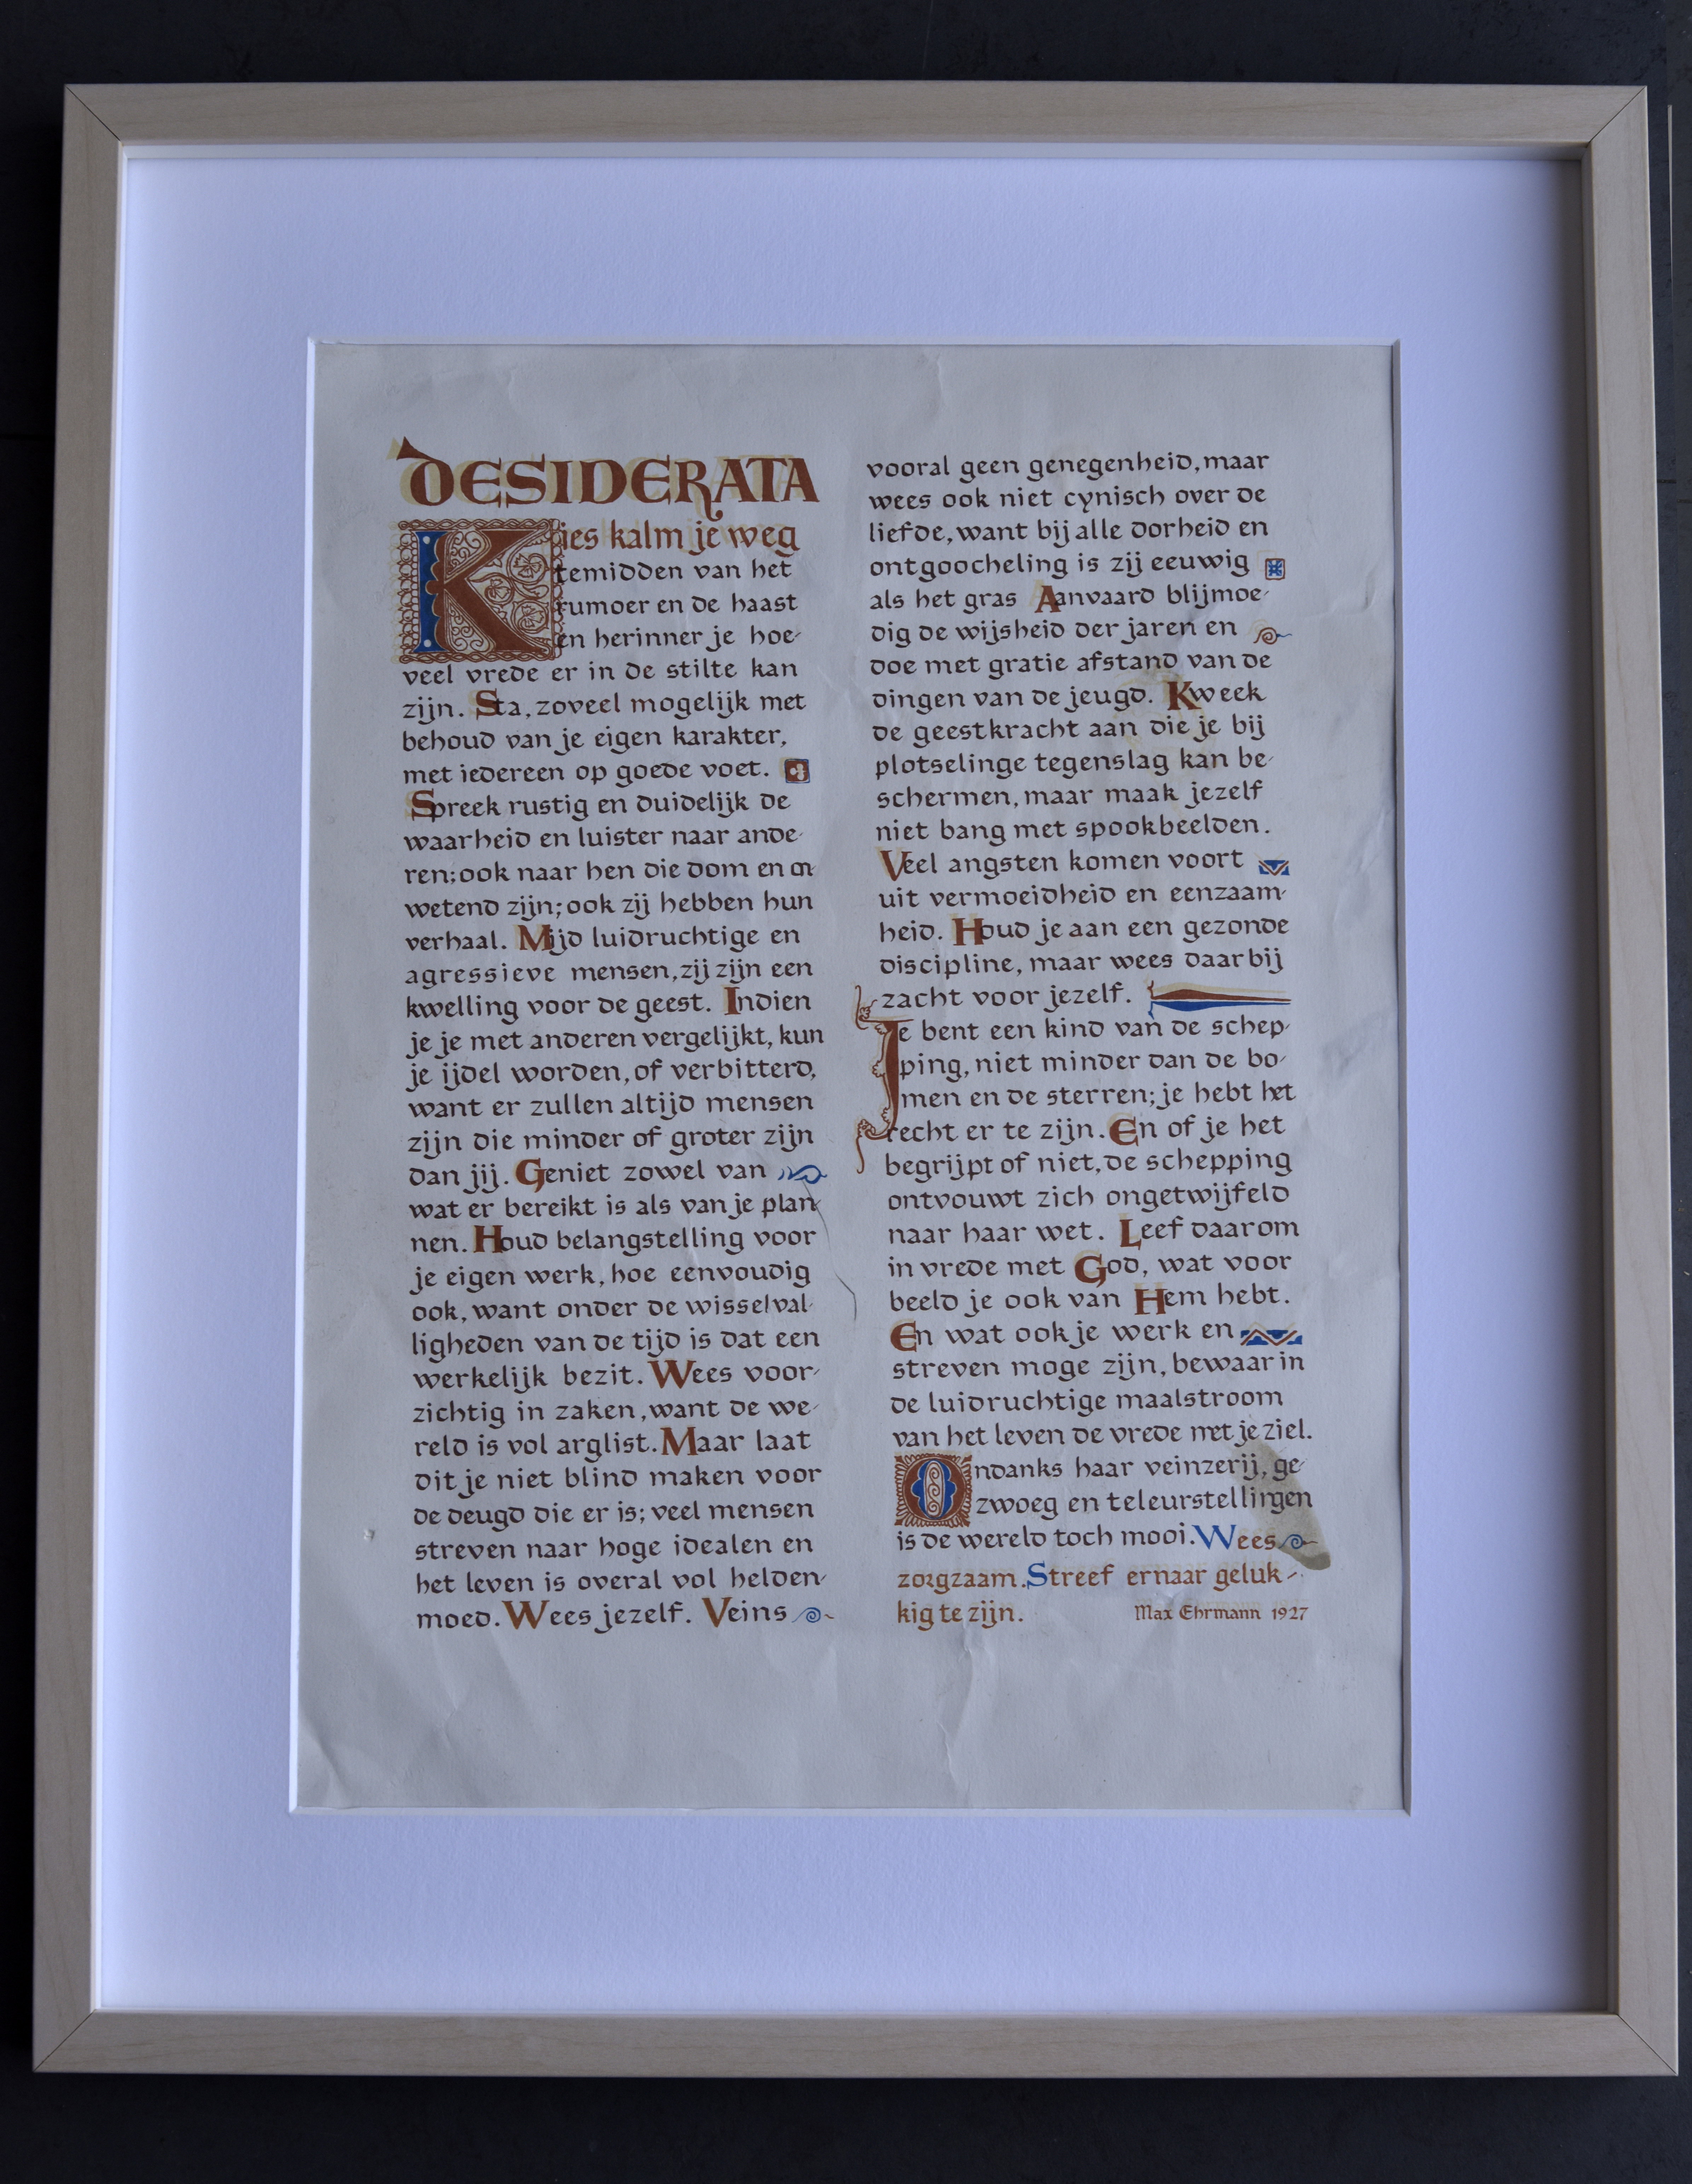 DESIDERATA
Kies kalm je weg
temidden van het
rumoer en de haast
en herinner je hoe-
veel vrede er in de stilte kan
zijn. Sta, zoveel mogelijk met
behoud van je eigen karakter,
met iedereen op goede voet.
Spreek rustig en duidelijk de
waarheid en luister naar ande-
ren; ook naar hen die dom en on-
wetend zijn; ook zij hebben hun
verhaal. Mijd luidruchtige en
agressieve mensen, zij zijn een
kwelling voor de geest. Indien
je je met anderen vergelijkt, kun
je ijdel worden, of verbitterd,
want er zullen altijd mensen
zijn die minder of groter zijn
dan jij. Geniet zowel van
wat er bereikt is als van je plan-
nen. Houd belangstelling voor
je eigen werk, hoe eenvoudig
ook, want onder de wisselval-
ligheden van de tijd is dat een
werkelijk bezit. Wees voor-
zichtig in zaken, want de we-
reld is vol arglist. Maar laat
dit je niet blind maken voor
de deugd die er is; veel mensen
streven naar hoge idealen en
het leven is overal vol helden-
moed. Wees jezelf. Veins
vooral geen genegenheid, maar
wees ook niet cynisch over de
liefde, want bij alle dorheid en
ontgoocheling is zij eeuwig
als het gras Aanvaard blijmoe-
dig de wijsheid der jaren en
doe met gratie afstand van de
dingen van de jeugd. Kweek
de geestkracht aan die je bij
plotselinge tegenslag kan be-
schermen, maar maak jezelf
niet bang met spookbeelden.
Veel angsten komen voort
uit vermoeidheid en eenzaam-
heid. Houd je aan een gezonde
discipline, maar wees daarbij
zacht voor jezelf.
Je bent een kind van de schep-
ping, niet minder dan de bo-
men en de sterren; je hebt het
recht er te zijn. En of je het
begrijpt of niet, de schepping
ontvouwt zich ongetwijfeld
naar haar wet. Leef daarom
in vrede met God, wat voor
beeld je ook van Hem hebt.
En wat ook je werk en
streven moge zijn, bewaar in
de luidruchtige maalstroom
van het leven de vrede met je ziel.
Ondanks haar veinzerij, ge-
zwoeg en teleurstellingen
is de wereld toch mooi. Wees
zorgzaam. Streef ernaar geluk-
kig te zijn. Max Ehrmann 1927